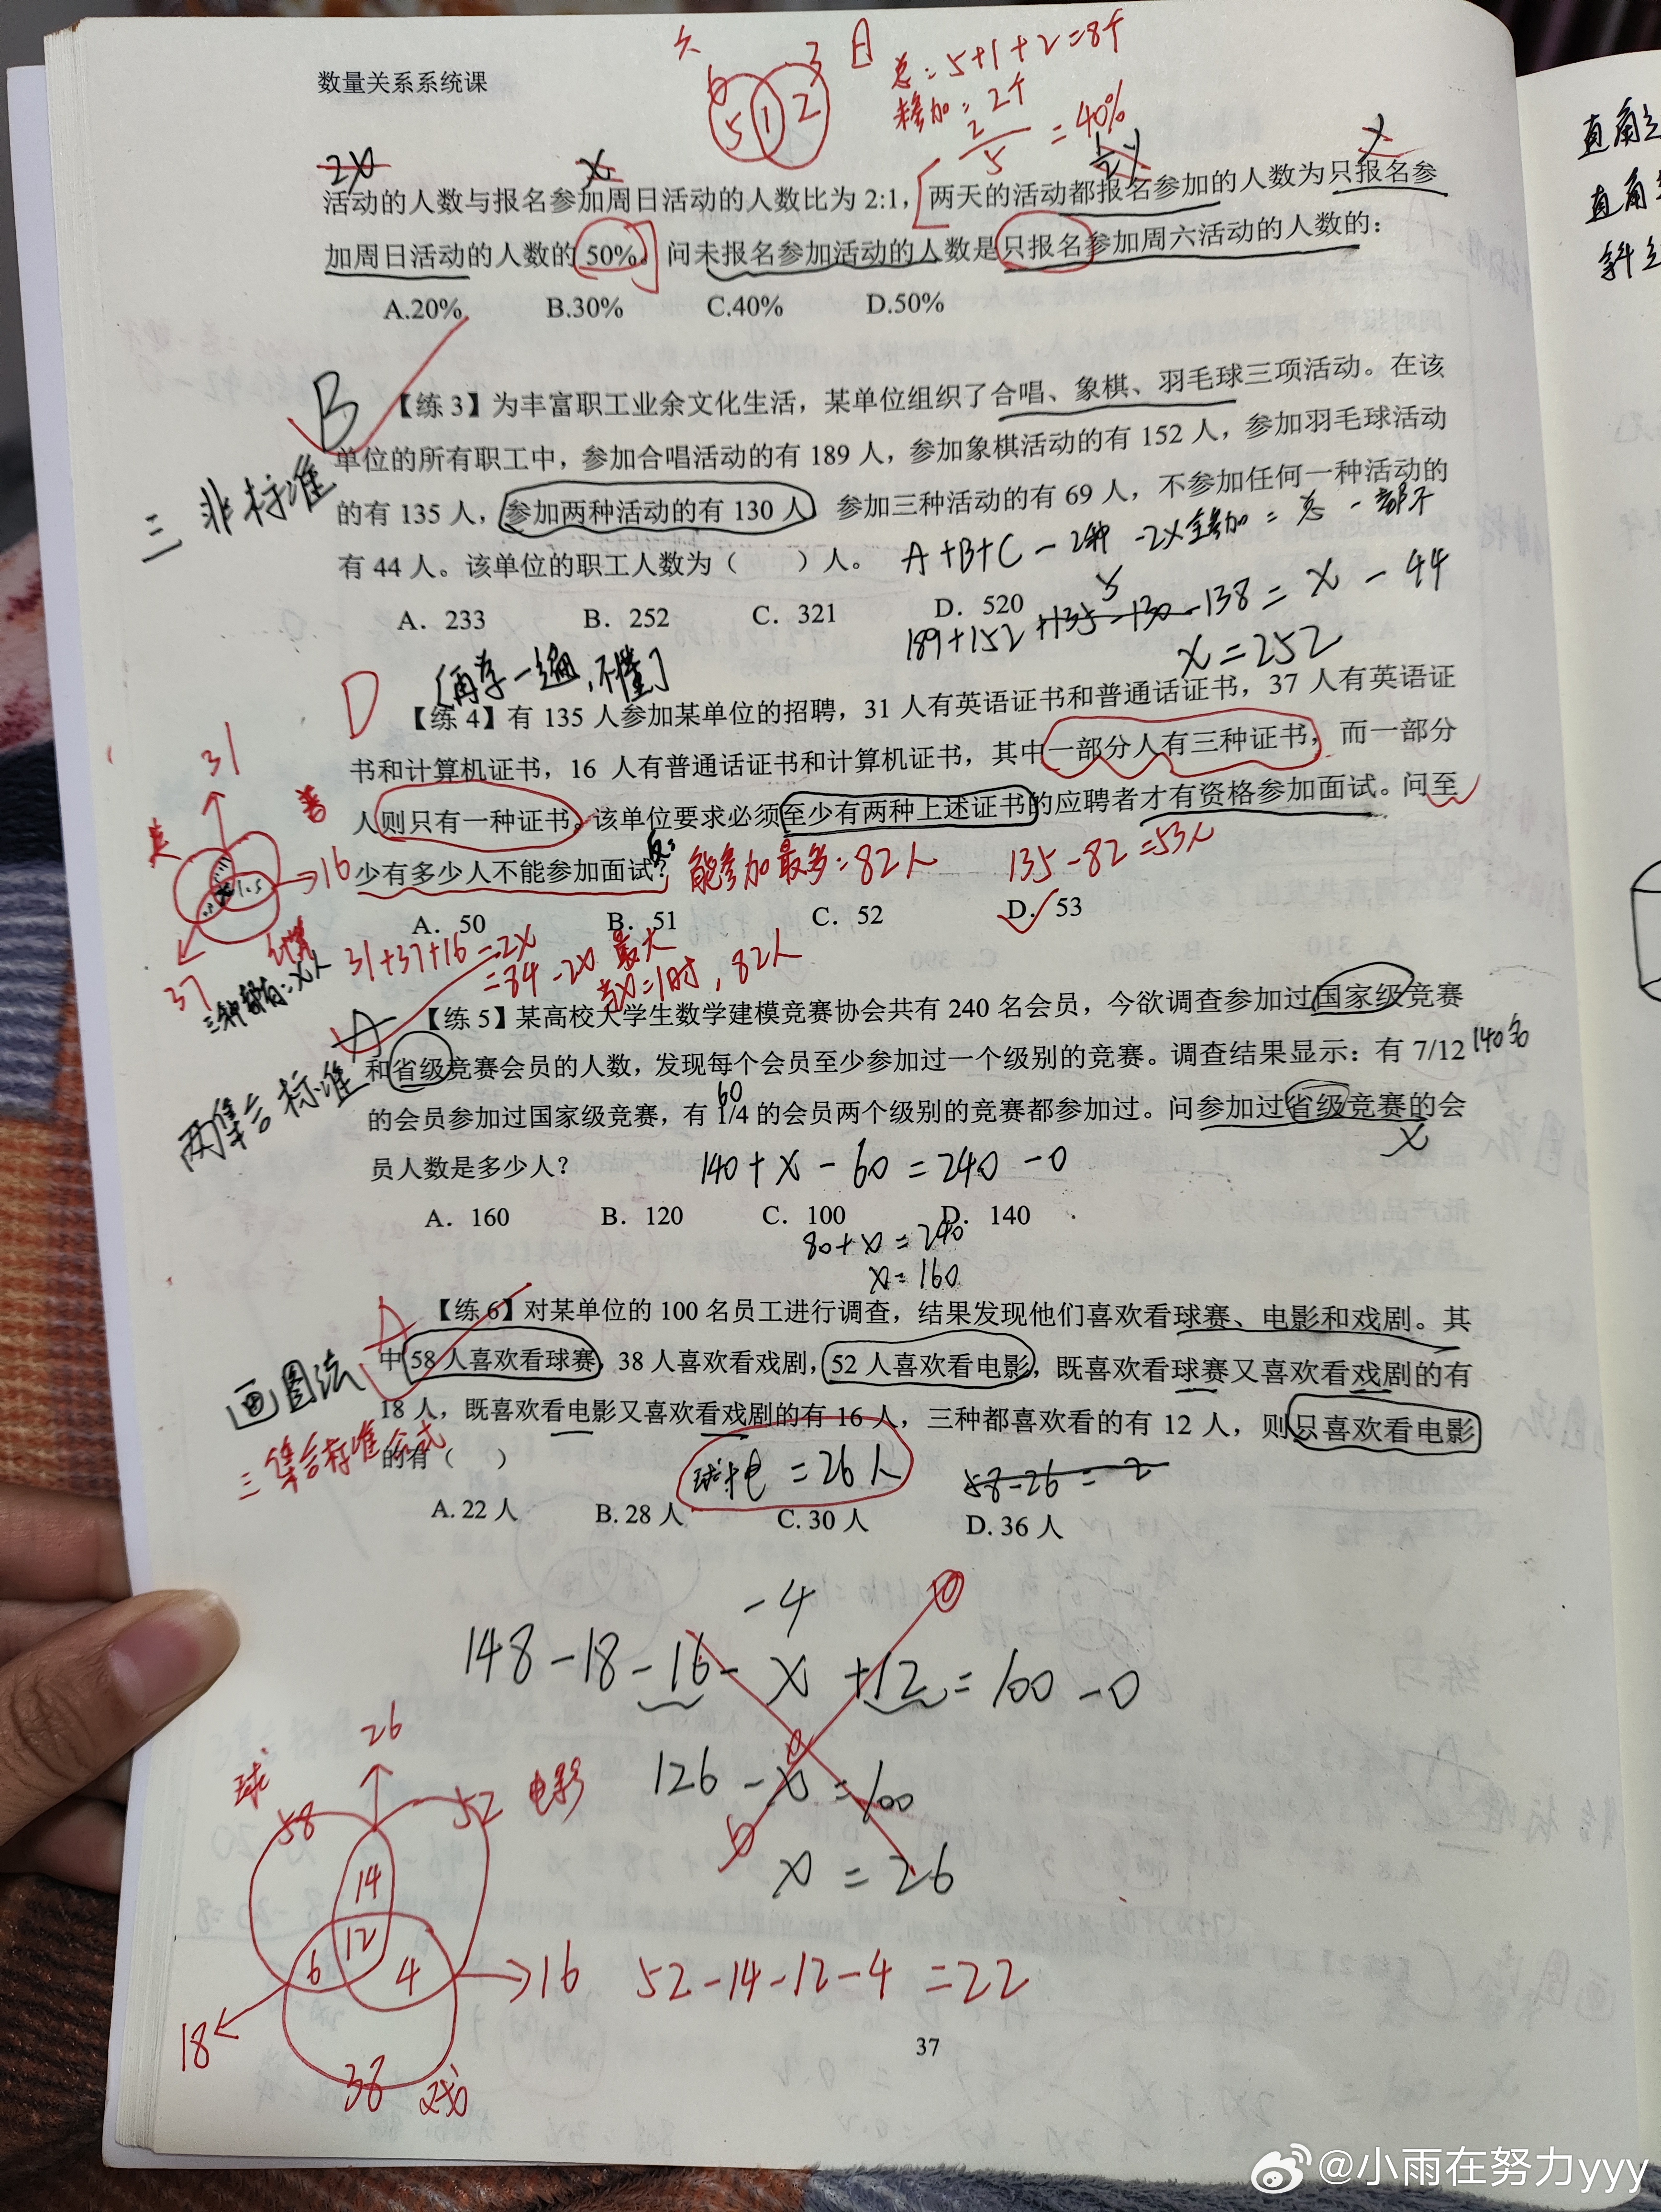 六 日
6 3
5 1 2
总：5+1+2=8个
未参加=2个
2/5=40%
数量关系系统课
2x x 1/2x x
活动的人数与报名参加周日活动的人数比为 2:1，两天的活动都报名参加的人数为只报名参
加周日活动的人数的 50%。问未报名参加活动的人数是只报名参加周六活动的人数的：
A.20% B.30% C.40% D.50%
B
三非标准
【练 3】为丰富职工业余文化生活，某单位组织了合唱、象棋、羽毛球三项活动。在该
单位的所有职工中，参加合唱活动的有 189 人，参加象棋活动的有 152 人，参加羽毛球活动
的有 135 人，参加两种活动的有 130 人，参加三种活动的有 69 人，不参加任何一种活动的
有 44 人。该单位的职工人数为（ ）人。
A+B+C-2种-2×全参加=总-都不
A．233 B．252 C．321 D．520
189+152+135-130-138=x-44
5
x=252
D
[再学一遍，不懂]
【练 4】有 135 人参加某单位的招聘，31 人有英语证书和普通话证书，37 人有英语证
书和计算机证书，16 人有普通话证书和计算机证书，其中一部分人有三种证书，而一部分
人则只有一种证书。该单位要求必须至少有两种上述证书的应聘者才有资格参加面试。问至
少有多少人不能参加面试？
能参加最多=82人
135-82=53人
A．50 B．51 C．52 D．53
31
英 普
16
37
31+37+16-2x
=84-2x 最大
当x=1时，82人
三种都有：x人
A
两集合标准
【练 5】某高校大学生数学建模竞赛协会共有 240 名会员，今欲调查参加过国家级竞赛
和省级竞赛会员的人数，发现每个会员至少参加过一个级别的竞赛。调查结果显示：有 7/12
140名
60
的会员参加过国家级竞赛，有 1/4 的会员两个级别的竞赛都参加过。问参加过省级竞赛的会
x
员人数是多少人？
140+x-60=240-0
A．160 B．120 C．100 D．140
80+x=240
x=160
A
【练 6】对某单位的 100 名员工进行调查，结果发现他们喜欢看球赛、电影和戏剧。其
中 58 人喜欢看球赛，38 人喜欢看戏剧，52 人喜欢看电影，既喜欢看球赛又喜欢看戏剧的有
18 人，既喜欢看电影又喜欢看戏剧的有 16 人，三种都喜欢看的有 12 人，则只喜欢看电影
的有（ ）
画图法
三集合标准公式
球+电=26人
58-26=2
A. 22 人 B. 28 人 C. 30 人 D. 36 人
-4
148-18-16-x+12=100-0
126-x=100
x=26
26
球 58 52 电影
14
12
6 4
18
16
52-14-12-4=22
38 戏
37
直角
直角
斜
@小雨在努力yyy